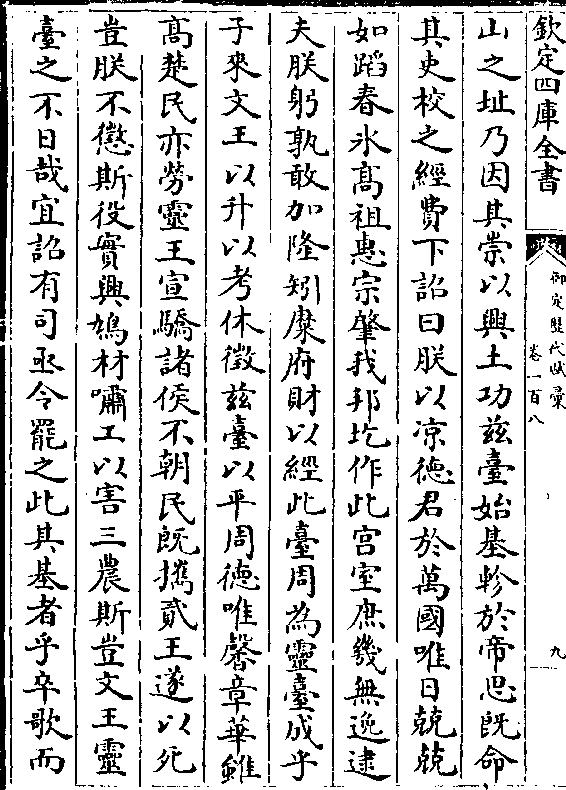 欽定四庫全書
御定歷代賦彙
卷一百八
九
山之址乃因其崇以興土功兹臺始基軫於帝思既命
其吏校之經費下詔曰朕以凉德君於萬國唯日兢兢
如蹈春氷髙祖惠宗肇我邦圪作此宫室庶幾無逸逮
夫朕躬孰敢加隆矧糜府財以經此臺周為靈臺成乎
子來文王以升以考休徵兹臺以平周德唯馨章華雖
髙楚民亦勞靈王宣驕諸侯不朝民既攜貳王遂以死
豈朕不懲斯役實興鳩材嘯工以害三農斯豈文王靈
臺之不日哉宜詔有司亟令罷之此其基者乎卒歌而